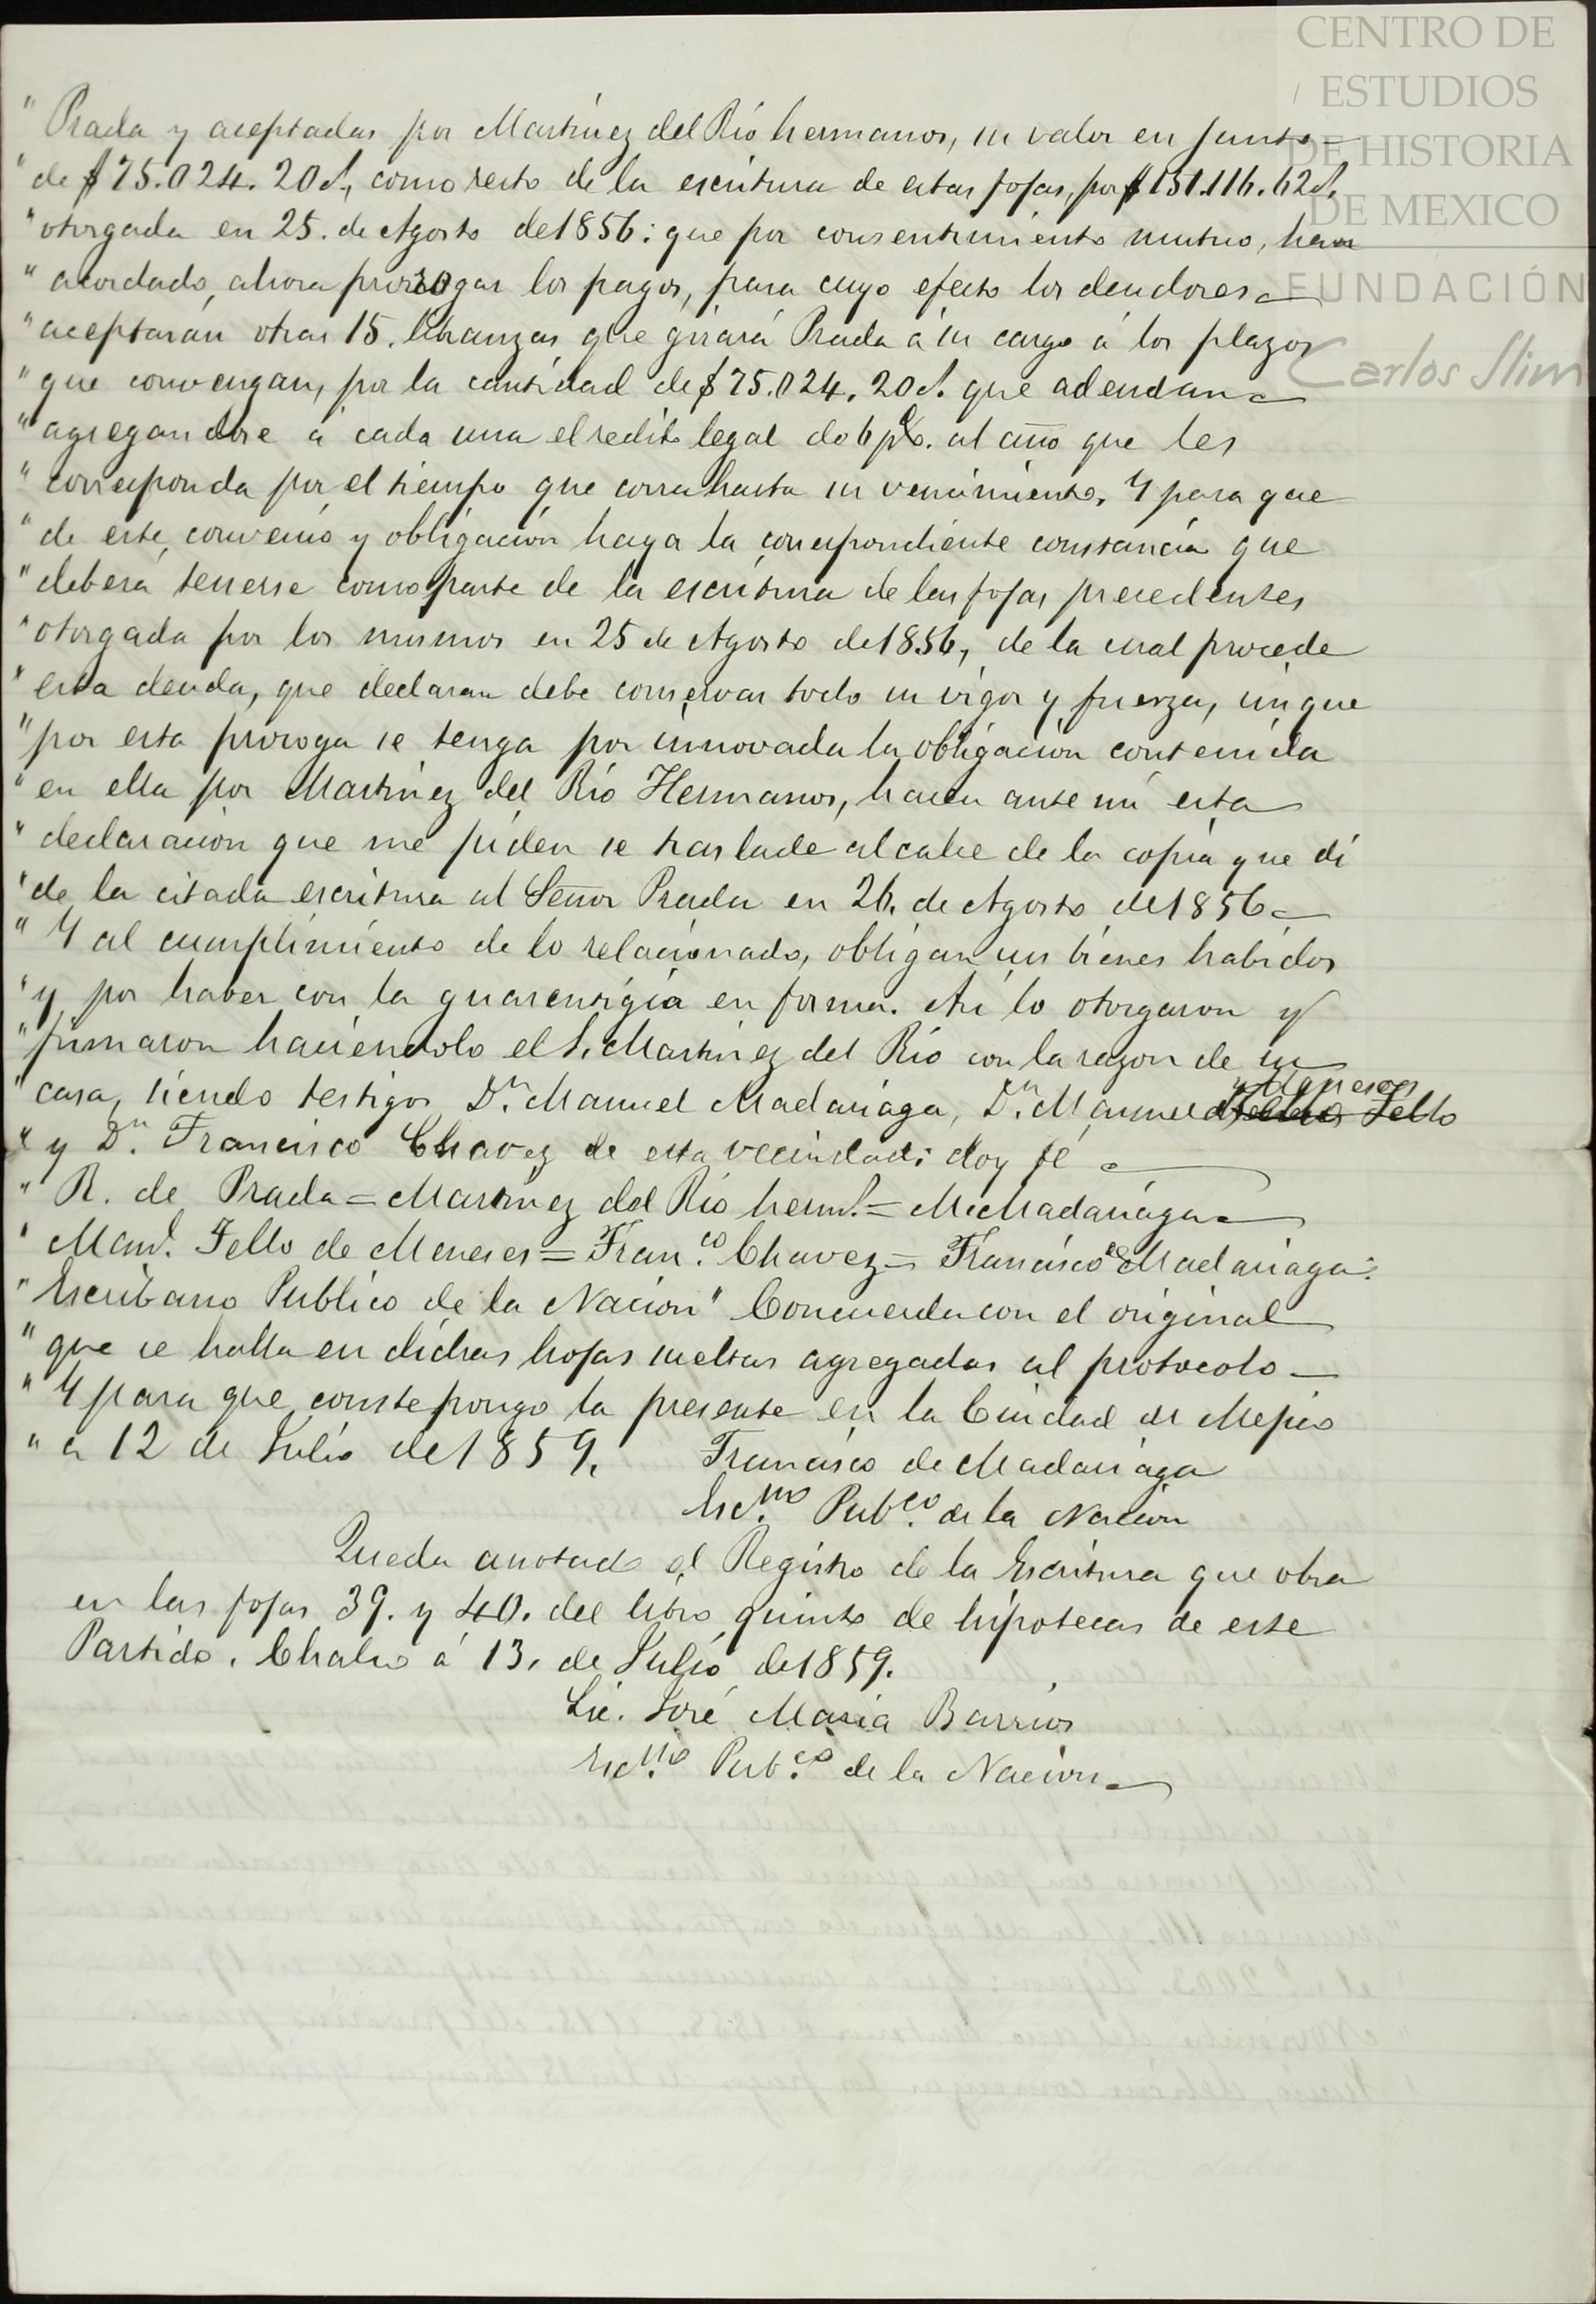 CENTRO DE
ESTUDIOS
DE HISTORIA
DE MEXICO
FUNDACIÓN
Carlos Slim
" Prada y aceptadas por Martinez del Rio hermanos, su valor en junto
" de $75.024. 20 c., como resto de la escritura de estas fojas, por $151.116. 62 c.
" otorgada en 25. de Agosto de 1856: que por consentimiento mutuo, han
" acordado, ahora prorrogar los pagos, para cuyo efecto los deudores
" aceptarán otras 15. libranzas que girará Prada á su cargo á los plazos
" que convengan, por la cantidad de $75.024. 20 c. que adeudan
" agregandose á cada una el redito legal de 6 p%. al año que les
" corresponda por el tiempo que corra hasta su vencimiento. Y para que
" de este, convenio y obligación haya la correspondiente constancia que
" deberá tenerse como parte de la escritura de las fojas precedentes
" otorgada por los mismos en 25 de Agosto de 1856, de la cual procede
" esta deuda, que declaran debe conservar todo su vigor y fuerza, sin que
" por esta proroga se tenga por innovada la obligación contenida
" en ella por Martinez del Rio Hermanos, hacen ante mi esta
" declaración que me piden se traslade al calce de la copia que dí
" de la citada escritura al Señor Prada en 26. de Agosto de 1856
" Y al cumplimiento de lo relacionado, obligan sus bienes habidos
" y por haber con la guarentigia en forma. Asi lo otorgaron y
" firmaron haciendolo el S. Martinez del Rio con la razon de su
" casa, siendo testigos Dn. Manuel Madariaga, Dn. Manuel Tello
y Meneses
" y Dn. Francisco Chavez de esta vecindad: doy fé
" R. de Prada = Martinez del Rio herms. = M. Madariaga
" Manl. Tello de Meneses = Fran.co Chavez = Francisco de Madariaga:
" Escribano Publico de la Nacion" Concuerda con el original
" que se halla en dichas hojas sueltas agregadas al protocolo
" Y para que conste pongo la presente en la Ciudad de Mejico
" a 12 de Julio de 1859. Francisco de Madariaga
Esc.no Pub.co de la Nacion
Queda anotado el Registro de la Escritura que obra
en las fojas 39. y 40. del libro quinto de hipotecas de este
Partido. Chalco á 13. de Julio de 1859.
Lic. José Maria Barrios
Esc.no Pub.co de la Nacion